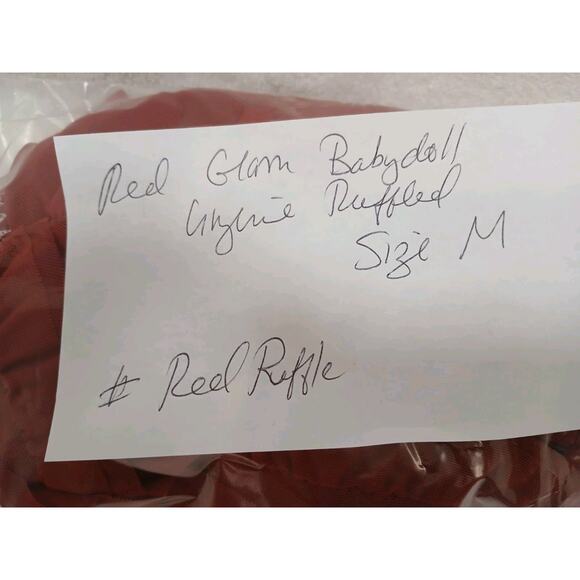 Red Glam Babydoll
Lingerie Ruffled
Size M
# Red Ruffle